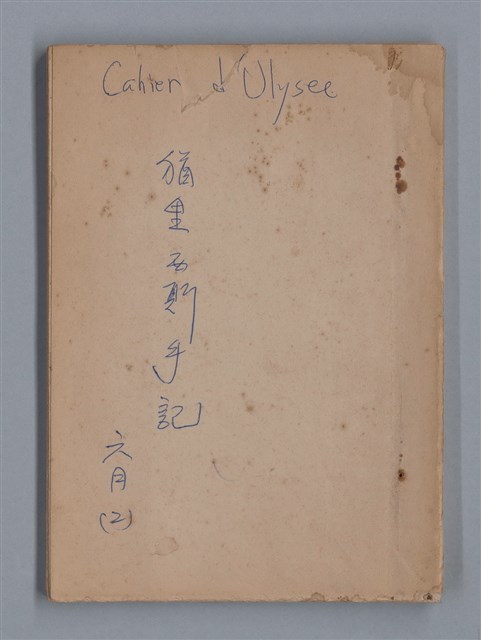 Cahier d'Ulysee
猶里西斯手記
六月(2)